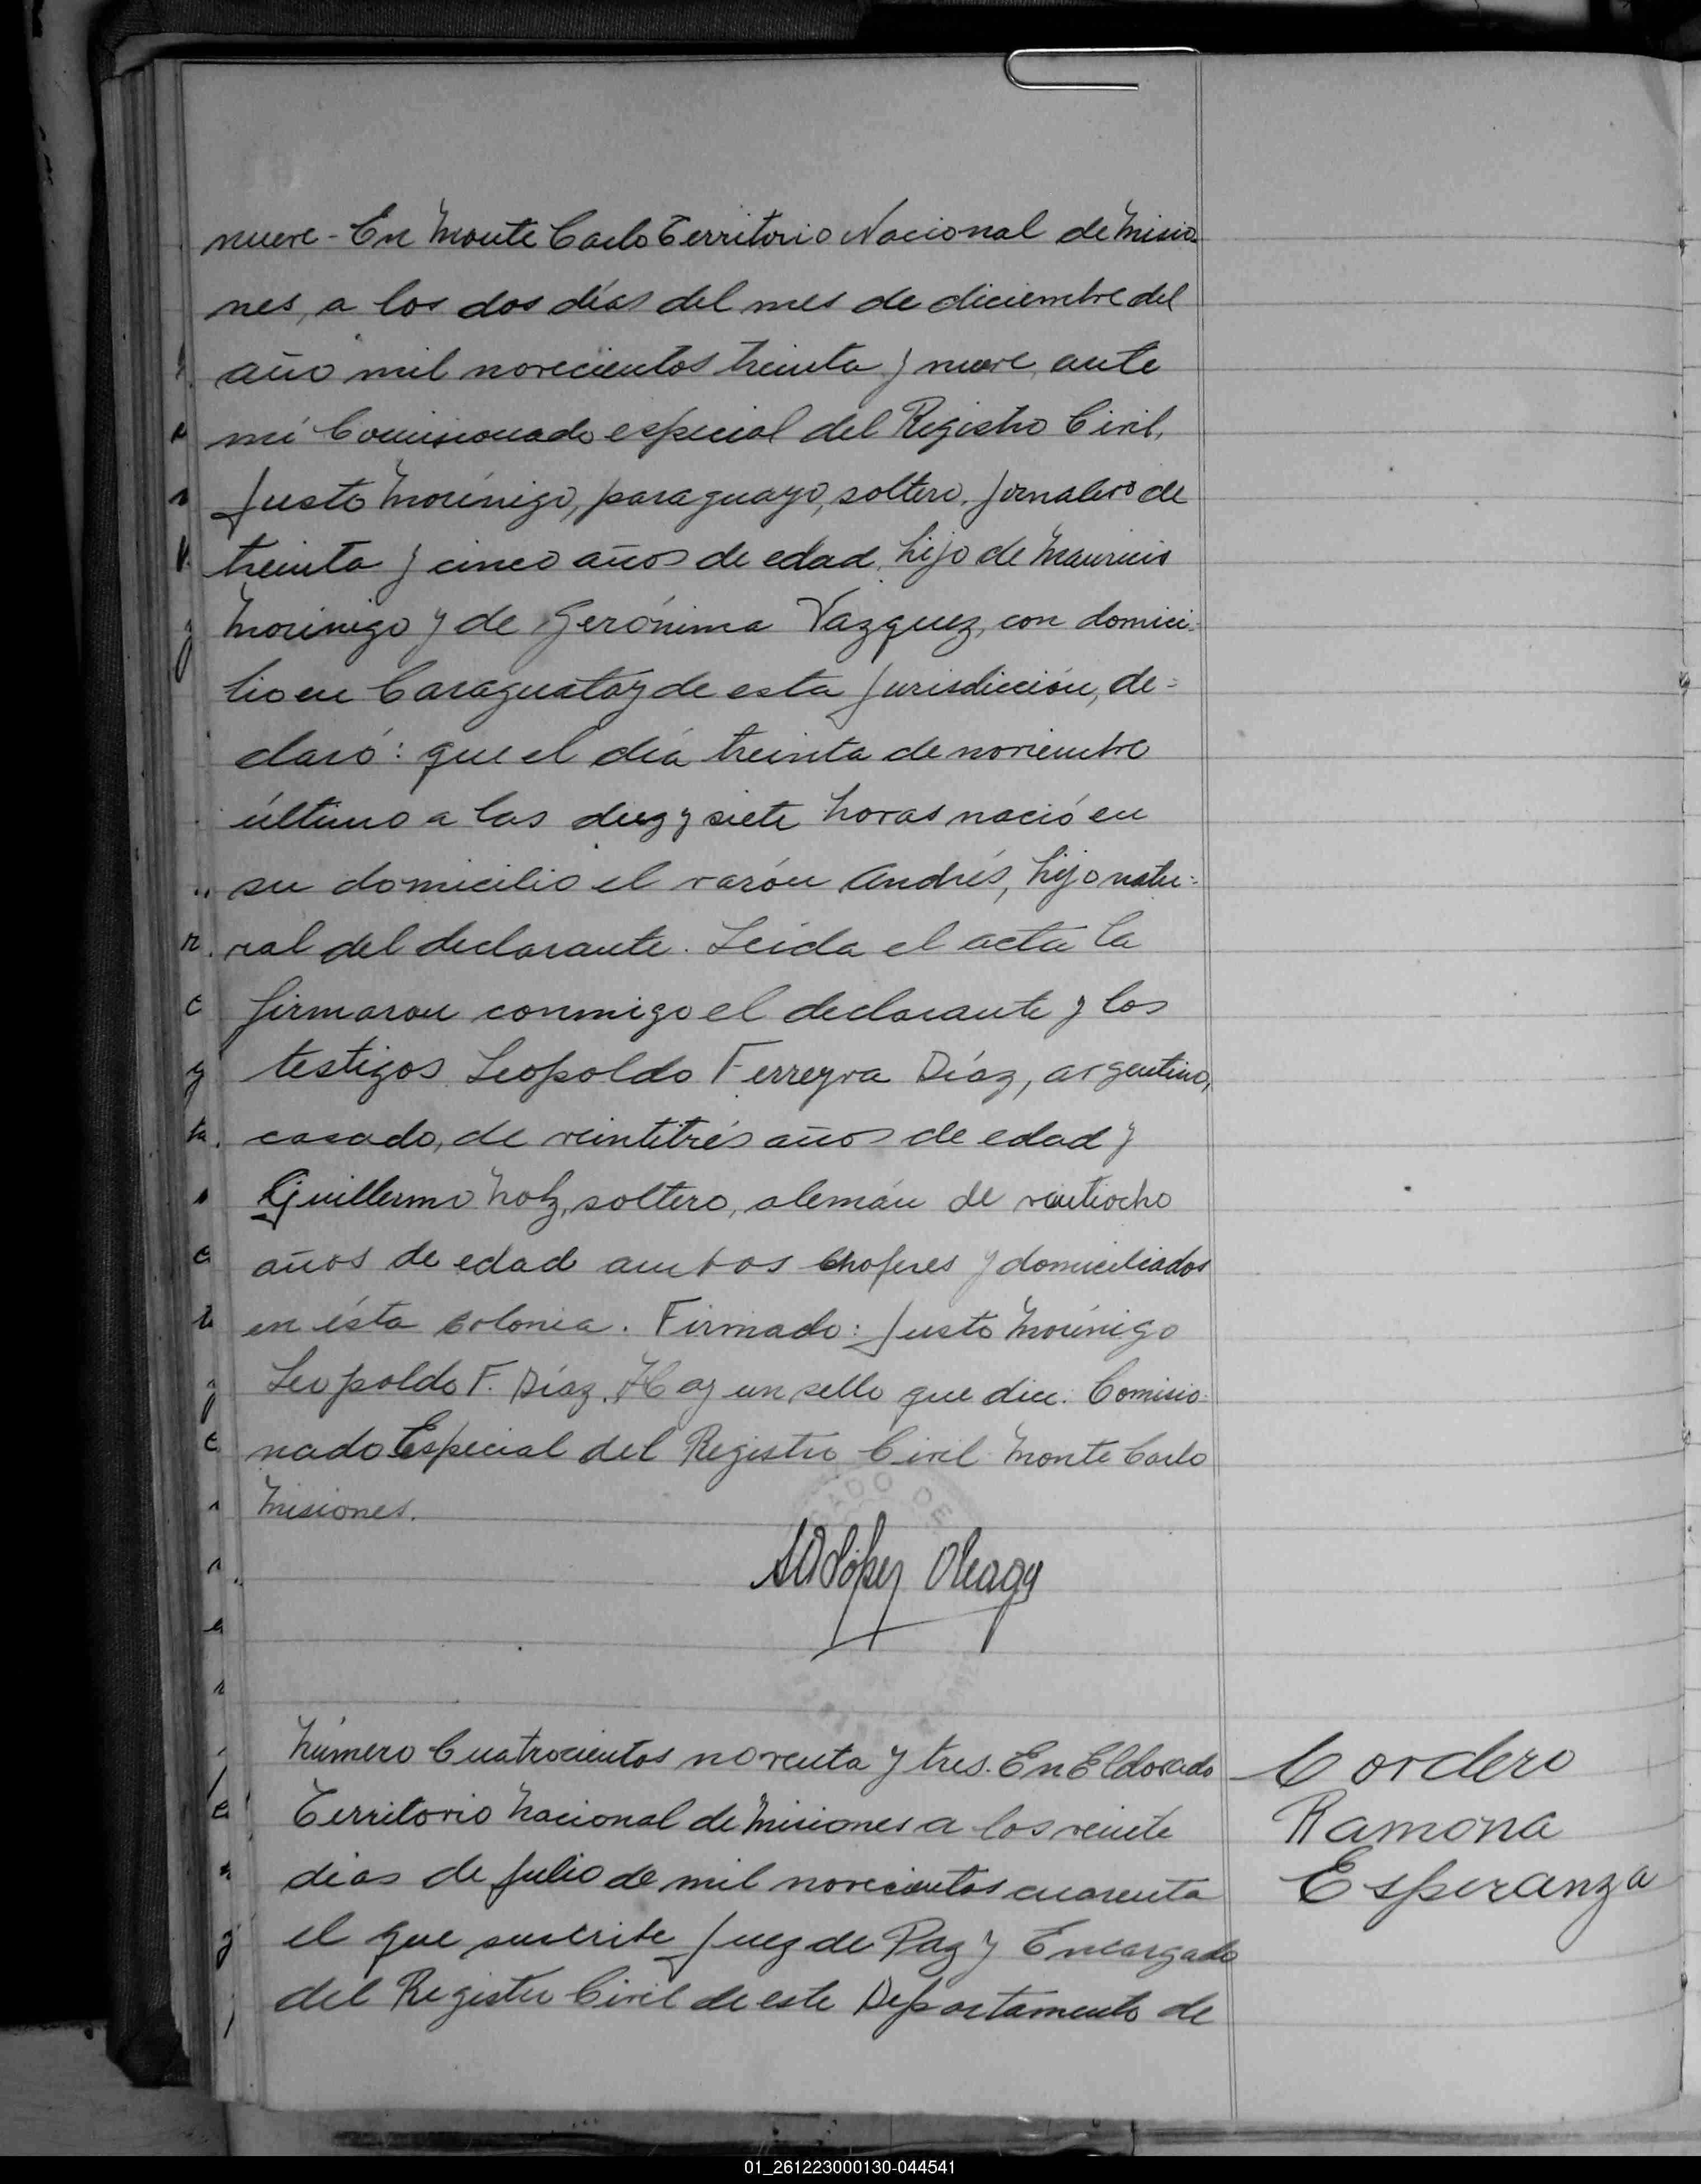 nueve - En Monte Carlo Territorio Nacional de Misio-
nes, a los dos días del mes de diciembre del
año mil novecientos treinta y nueve, ante
mí Comisionado especial del Registro Civil,
Justo Morínigo, paraguayo, soltero, jornalero de
treinta y cinco años de edad, hijo de Mauricio
Morinigo y de Gerónima Vazquez, con domici-
lio en Caraguatay de esta jurisdicción, de=
claró: que el día treinta de noviembre
último a las diez y siete horas nació en
su domicilio el varón Andrés, hijo natu=
ral del declarante. Leida el acta la
firmaron conmigo el declarante y los
testigos Leopoldo Ferreyra Díaz, argentino,
casado, de veintitrés años de edad y
Guillermo Notz, soltero, alemán de veintiocho
años de edad ambos choferes y domiciliados
en ésta colonia. Firmado: Justo Morínigo
Leopoldo F. Díaz. Hay un sello que dice: Comisio-
nado Especial del Registro Civil Monte Carlo
Misiones.
López Oleagy
Número Cuatrocientos noventa y tres. En Eldorado
Territorio Nacional de Misiones a los veinte
dias de Julio de mil novecientos cuarenta
el que suscribe Juez de Paz y Encargado
del Registro Civil de este Departamento de
Cordero
Ramona
Esperanza
01_261223000130-044541